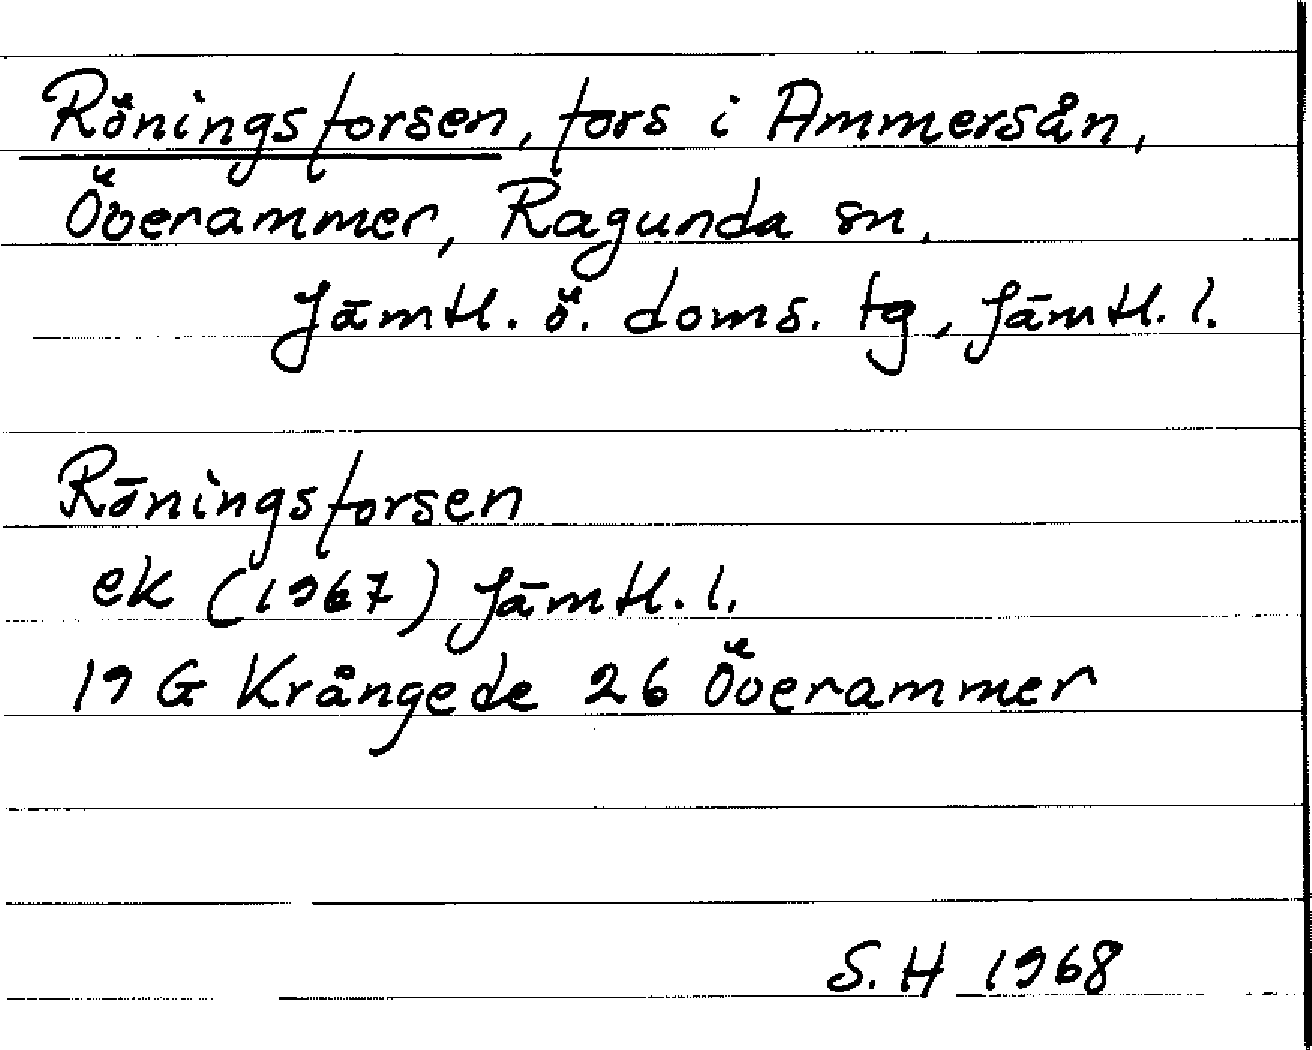 Röningsforsen, fors i Ammersån,
Överammer, Ragunda sn,
Jämtl. ö. doms. tg, Jämtl. l.
Röningsforsen
ek (1967) Jämtl. l.
19 G Krångede 26 Överammer
S. H 1968